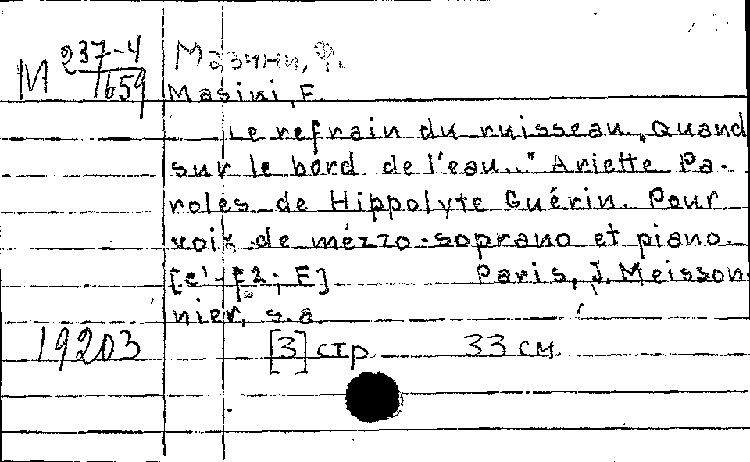 М 237-4/659
Мазини, Ф.
Masini, F.
Le refrain du ruisseau „Quand
sur le bord de l'eau.." Ariette Pa-
roles de Hippolyte Guérin. Pour
voix de mezzo-soprano et piano.
[e'-f2; F] Paris, J. Meisson-
nier, s.a.
19203 [3] стр 33 см.